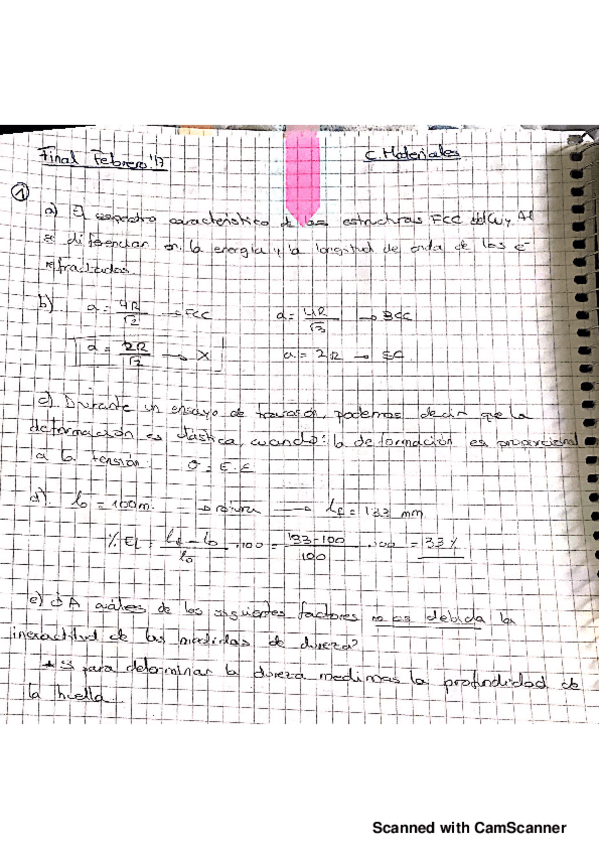 Final Febrero '17
C. Materiales
1
a) El espectro característico de las estructuras FCC del Cu y Al
se diferencian en la energía y la longitud de onda de los e-
b) a = 4R/√2 → FCC
a = 4R/√3 → BCC
a = 2R/√2 → X
a = 2R → SC
c) Durante un ensayo de tracción, podemos decir que la
deformación es elástica, cuando: la deformación es proporcional
a la tensión σ = E·ε
d) l0 = 100m. → rotura → lf = 133 mm
% EL = (lf - l0)/l0 · 100 = (133-100)/100 · 100 = 33%
e) ¿A de los siguientes factores no es debida la
inexactitud de las medidas de dureza?
para determinar la dureza medimos la profundidad de
la huella.
Scanned with CamScanner